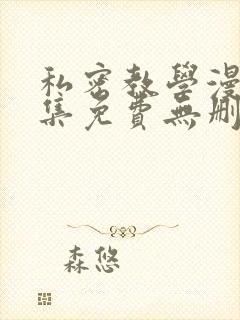 私密教學漫
集免費無刪
森悠